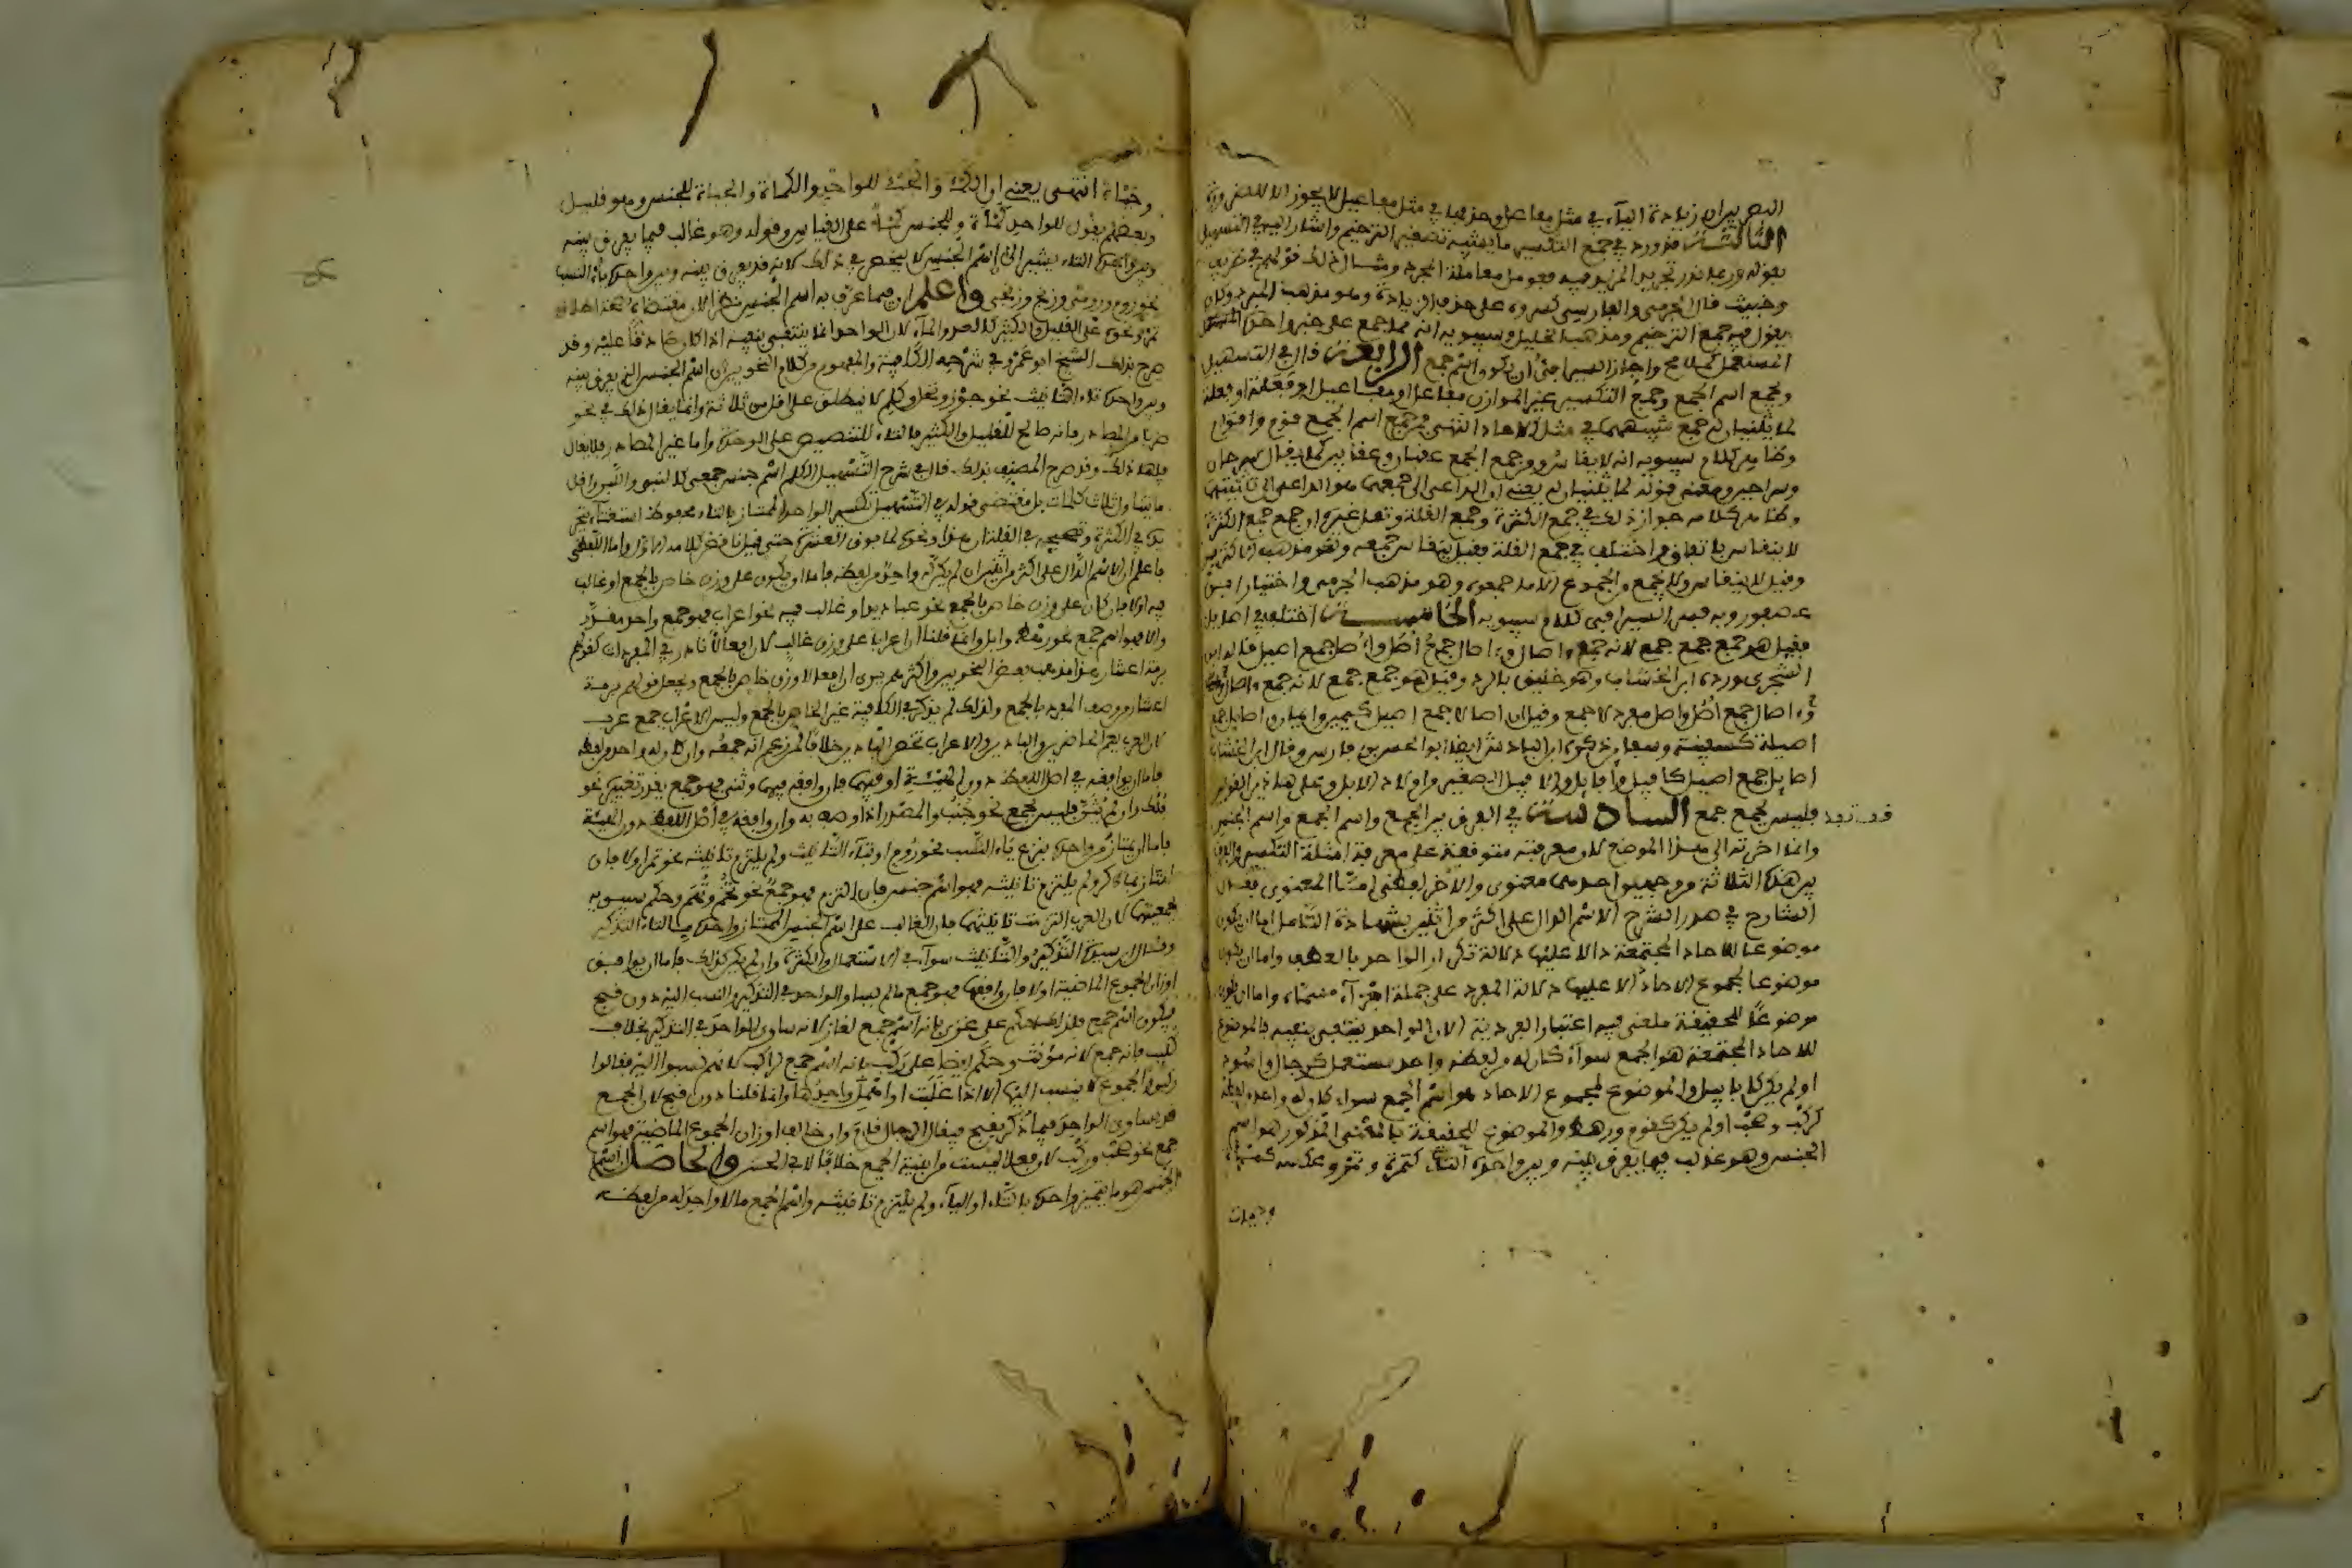 البصريين ان زيادة الياء في مثل مفاعل وحذفها في مثل مفاعيل لا يجوز الا للضرورة
الثالث قد ورد في جمع التكسير ما يشبه تصغير الترخيم واشار اليه في التسهيل
بقوله وربما قدر تجريد المزيد فيه فعومل معاملة المجرد ومثال ذلك قولهم في ظريف
وخبيث قال الجرمي والفارسي كسروه على حذف الزيادة وهو مذهب المبرد وكان
يقول فيه جمع الترخيم ومذهب الخليل وسيبويه انه مما جمع على غير واحده المستعمل
المستعمل كملامح واجاز السيرافي ان يكون اسم جمع الرابع قال في التسهيل
ويجمع اسم الجمع وجمع التكسير غير الموازن مفاعل او مفاعيل او فعلة او فعلة
لما يثنيان له جمع شبيههما في مثل الآحاد انتهى فمن جمع اسم الجمع قوم واقوام
وظاهر كلام سيبويه انه لا يقاس ومن جمع الجمع عقبان وعقابين كما يقال سرحان
وسراحين ومعنى قوله لما يثنيان له يعني ان الداعي الى جمعهما هو الداعي الى تثنيتهما
وظاهر كلامه جواز ذلك في جمع الكثرة وجمع القلة ونقل غيره ان جمع جمع الكثرة
لا ينقاس باتفاق واختلف في جمع القلة فقيل ينقاس جمعه وهو مذهب الاكثرين
وقيل لا ينقاس ولا يجمع من الجموع الا ما جمعوا وهو مذهب الجرمي واختيار ابن
عصفور وبه فسر السيرافي كلام سيبويه الخامس اختلف في اصائل
فقيل هو جمع جمع جمع لانه جمع ءاصال وءاصال جمع اصل واصل جمع اصيل قاله ابن
الشجري ورده ابن الخشاب وهو خليق بالرد وقيل هو جمع جمع لانه جمع ءاصال
وءاصال جمع اصل واصل مفرد لا جمع وقيل ان اصالا جمع اصيل كيمين وايمان واصائل جمع
اصيلة كسفينة وسفاين ذكره ابن الباذش ايضا ابو الحسين بن فارس وقال ابن الخشاب
اصايل جمع اصيل كافيل وافايل والافيل الصغير من اولاد الابل وعلى هاذين القولين
فليس بجمع جمع السادس في الفرق بين الجمع واسم الجمع واسم الجنس
وانما اخرته الى هذا الموضع لان معرفته متوقفة على معرفة امثلة التكسير والفرق
بين هذه الثلاثة من وجهين احدهما معنوي والآخر لفظي اما المعنوي فقال
الشارح في صدر الشرح الاسم الدال على اكثر من اثنين بشهادة التامل اما ان يكون
موضوعا للآحاد المجتمعة دالا عليها دلالة تكرار الواحد بالعطف واما ان يكون
موضوعا لمجموع الآحاد دالا عليها دلالة المفرد على جملة اجزاء مسماه واما ان يكون
موضوعا للحقيقة ملغى فيه اعتبار الفردية الا ان الواحد ينتفي بنفيه فالموضوع
للآحاد المجتمعة هو الجمع سواء كان له من لفظه واحد مستعمل كرجال واسود
او لم يكن كابابيل والموضوع لمجموع الآحاد هو اسم الجمع سواء كان له واحد من لفظه
كركب وصحب او لم يكن كقوم ورهط والموضوع للحقيقة بالمعنى المذكور هو اسم
الجنس وهو غالب فيما يفرق بينه وبين واحده التاء كتمرة وتمر وعكسه كمأة
وجبأة انتهى يعني ان الكمء والجبء للواحد والكمأة والجبأة للجنس وهو قليل
وبعضهم يقول للواحد كمأة وللجنس كمء على القياس وقوله وهو غالب فيما يفرق بينه
وبين واحده التاء يشير الى ان اسم الجنس لا ينحصر في ذلك لانه قد يفرق بينه وبين واحده ياء النسب
نحو روم ورومي وزنج وزنجي واعلم ان فيما عرف به اسم الجنس نظرا لان مقتضاه صحة اطلاق
تمر ونحوه على القليل والكثير كالعسل والماء لان الواحد انما ينتفي بنفيه اذا كان صادقا عليه وقد
صرح بذلك الشيخ ابو عمرو في شرحه الكافية والمفهوم من كلام النحويين ان اسم الجنس الذي يفرق بينه
وبين واحده تاء التانيث نحو جوز ونخل وكلم لا ينطلق على اقل من ثلاثة وانما يقال ذلك في نحو
ضربا من المصادر فانه صالح للقليل والكثير فالتاء للتنصيص على الوحدة واما غير المصادر فلا يقال
فيها ذلك وقد صرح المصنف بذلك قال في شرح التسهيل الكلم اسم جنس جمعي كالنبق واللبن واقل
ما يتناول ثلاث كلمات بل مقتضى قوله في التسهيل تكسير الواحد الممتاز بالتاء محفوظ استغناء بتجر
يده في الكثرة وتصحيحه في القلة ان هذا ونحوه لما فوق العشرة حتى قيل ناقض كلامه اولا واما اللفظي
فاعلم ان الاسم الدال على اكثر من اثنين ان لم يكن له واحد من لفظه فاما ان يكون على وزن خاص بالجمع او غالب
فيه او لا فان كان على وزن خاص بالجمع نحو عباديد او غالب فيه نحو اعراب فهو جمع واحد مقدر
والا فهو اسم جمع نحو رهط وابل وانما قلنا ان اعرابا على وزن غالب لان افعالا نادر في المفردات كقولهم
برمة اعشار هذا مذهب بعض النحويين واكثرهم يرى ان افعالا وزن خاص بالجمع ويجعل قولهم برمة
اعشار من وصف المفرد بالجمع ولذلك لم يذكر في الكافية غير الخاص بالجمع وليس الاعراب جمع عرب
لان العرب يعم الحاضرين والبادين والاعراب تخص البادين خلافا لمن زعم انه جمعه وان كان له واحد من لفظه
فاما ان يوافقه في اصل اللفظ دون الهيئة او فيهما فان وافقه فيهما وثني فهو جمع يقدر تغييره نحو
فلك وان لم يثن فليس بجمع نحو جنب والمصدر اذا وصف به وان وافقه في اصل اللفظ دون الهيئة
فاما ان يمتاز من واحده بنزع ياء النسب نحو روم او تاء التانيث ولم يلتزم تانيثه نحو تمر او لا فان
امتاز بما ذكر ولم يلتزم تانيثه فهو اسم جنس فان التزم فهو جمع نحو تخم وتهم وحكم سيبويه
بجمعيتهما لان العرب التزمت تانيثهما فان الغالب على اسم الجنس الممتاز واحده بالتاء التذكير
وقال ابن سيده التذكير والتانيث سواء في الاستعمال والكثرة وان لم يكن كذلك فاما ان يوافق
اوزان الجموع الماضية او لا فان وافقها فهو جمع ما لم يساو الواحد في التذكير والنسب اليه دون قبح
فيكون اسم جمع فلذلك حكم على غزي بانه اسم جمع لغاز لانه ساوى الواحد في التذكير بخلاف
كليب فانه جمع لانه مؤنث وحكم ايضا على ركاب بانه اسم جمع لركوبة لانهم نسبوا اليه فقالوا
ركابي والجموع لا ينسب اليها الا اذا غلبت او اهمل واحدها وانما قلنا دون قبح لان الجمع
قد يساوي الواحد فيما ذكر بقبح فيقال الرجال قام وان خالف اوزان الجموع الماضية فهو اسم
جمع نحو صحب وركب لان فعلا ليست من ابنية الجمع خلافا لابي الحسن والحاصل ان اسم
الجنس هو ما يتميز واحده بالتاء او الياء ولم يلتزم تانيثه واسم الجمع ما لا واحد له من لفظه